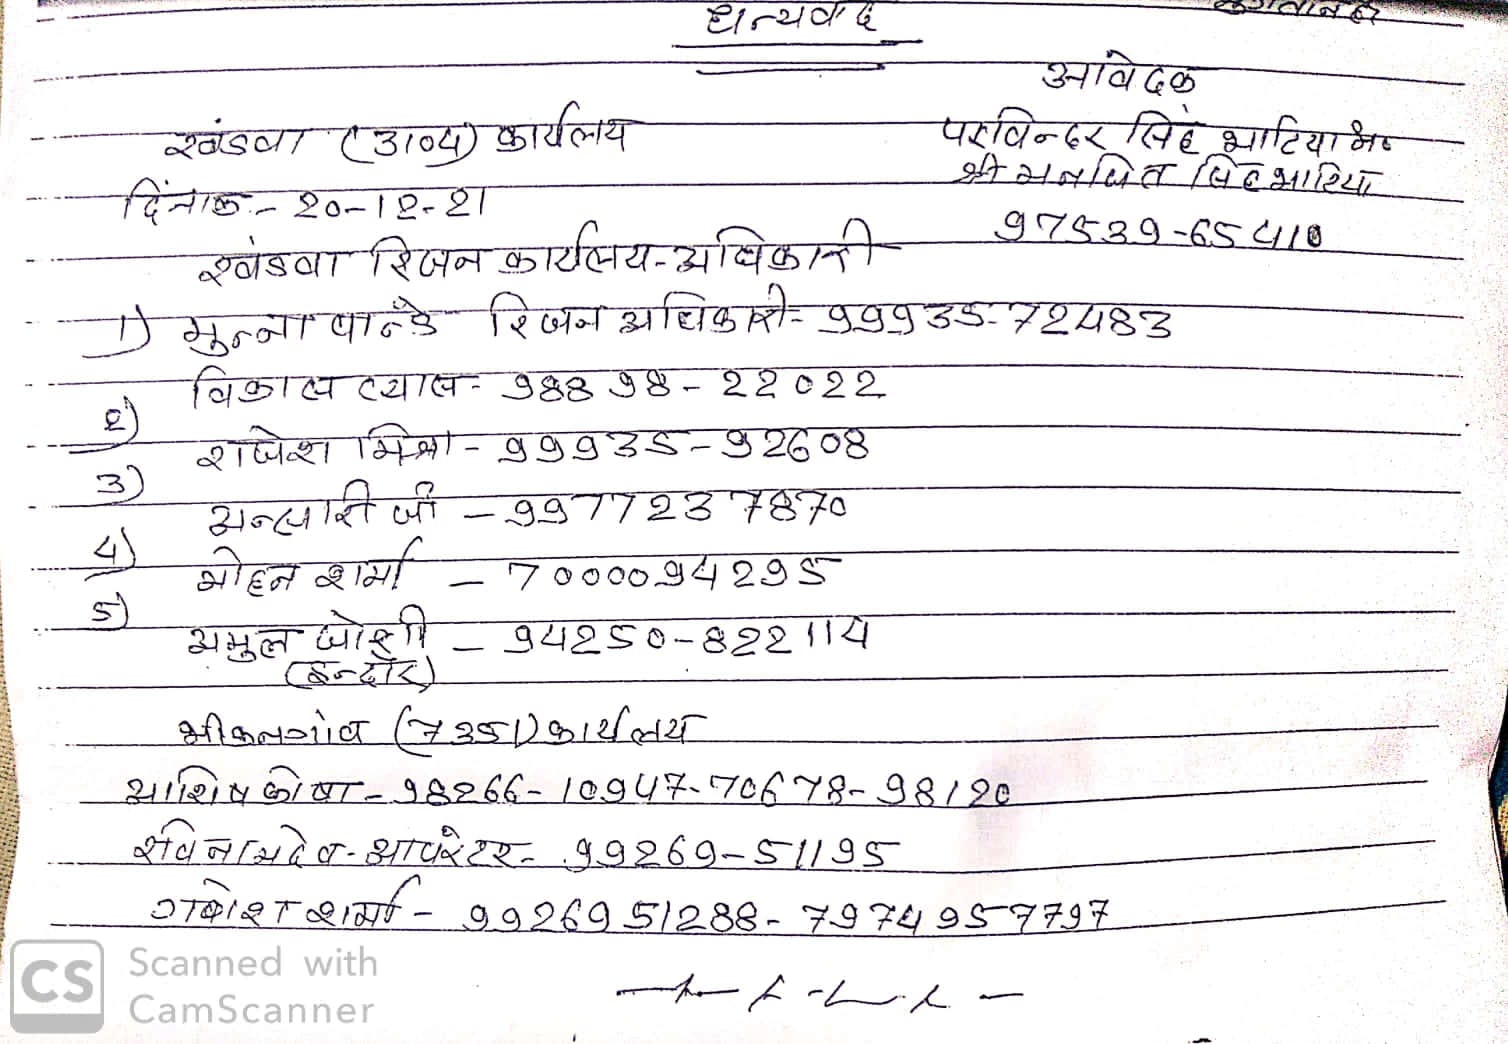 धन्यवाद
आवेदक
खंडवा (3104) कार्यलय
परविन्दर सिंह भाटिया
श्री मनजित सिंह भाटिया
दिनांक - 20-12-21
97539-65410
खंडवा रिजन कार्यलय-अधिकारी
1) मुन्ना पान्डे रिजन अधिकारी- 99935-72483
2) विकास व्यास- 98898-22022
3) राजेश मिश्रा - 99935-92608
4) अन्सारी जी - 9977237870
5) मोहन शर्मा - 7000094295
अमुल जोशी - 94250-822114
(इन्दौर)
भीकनगांव (7351) कार्यलय
आशिष - 98266-10947-70678-98120
रवि नामदेव-आपरेटर- 99269-51195
शर्मा - 9926951288- 7974957797
CS Scanned with
CamScanner